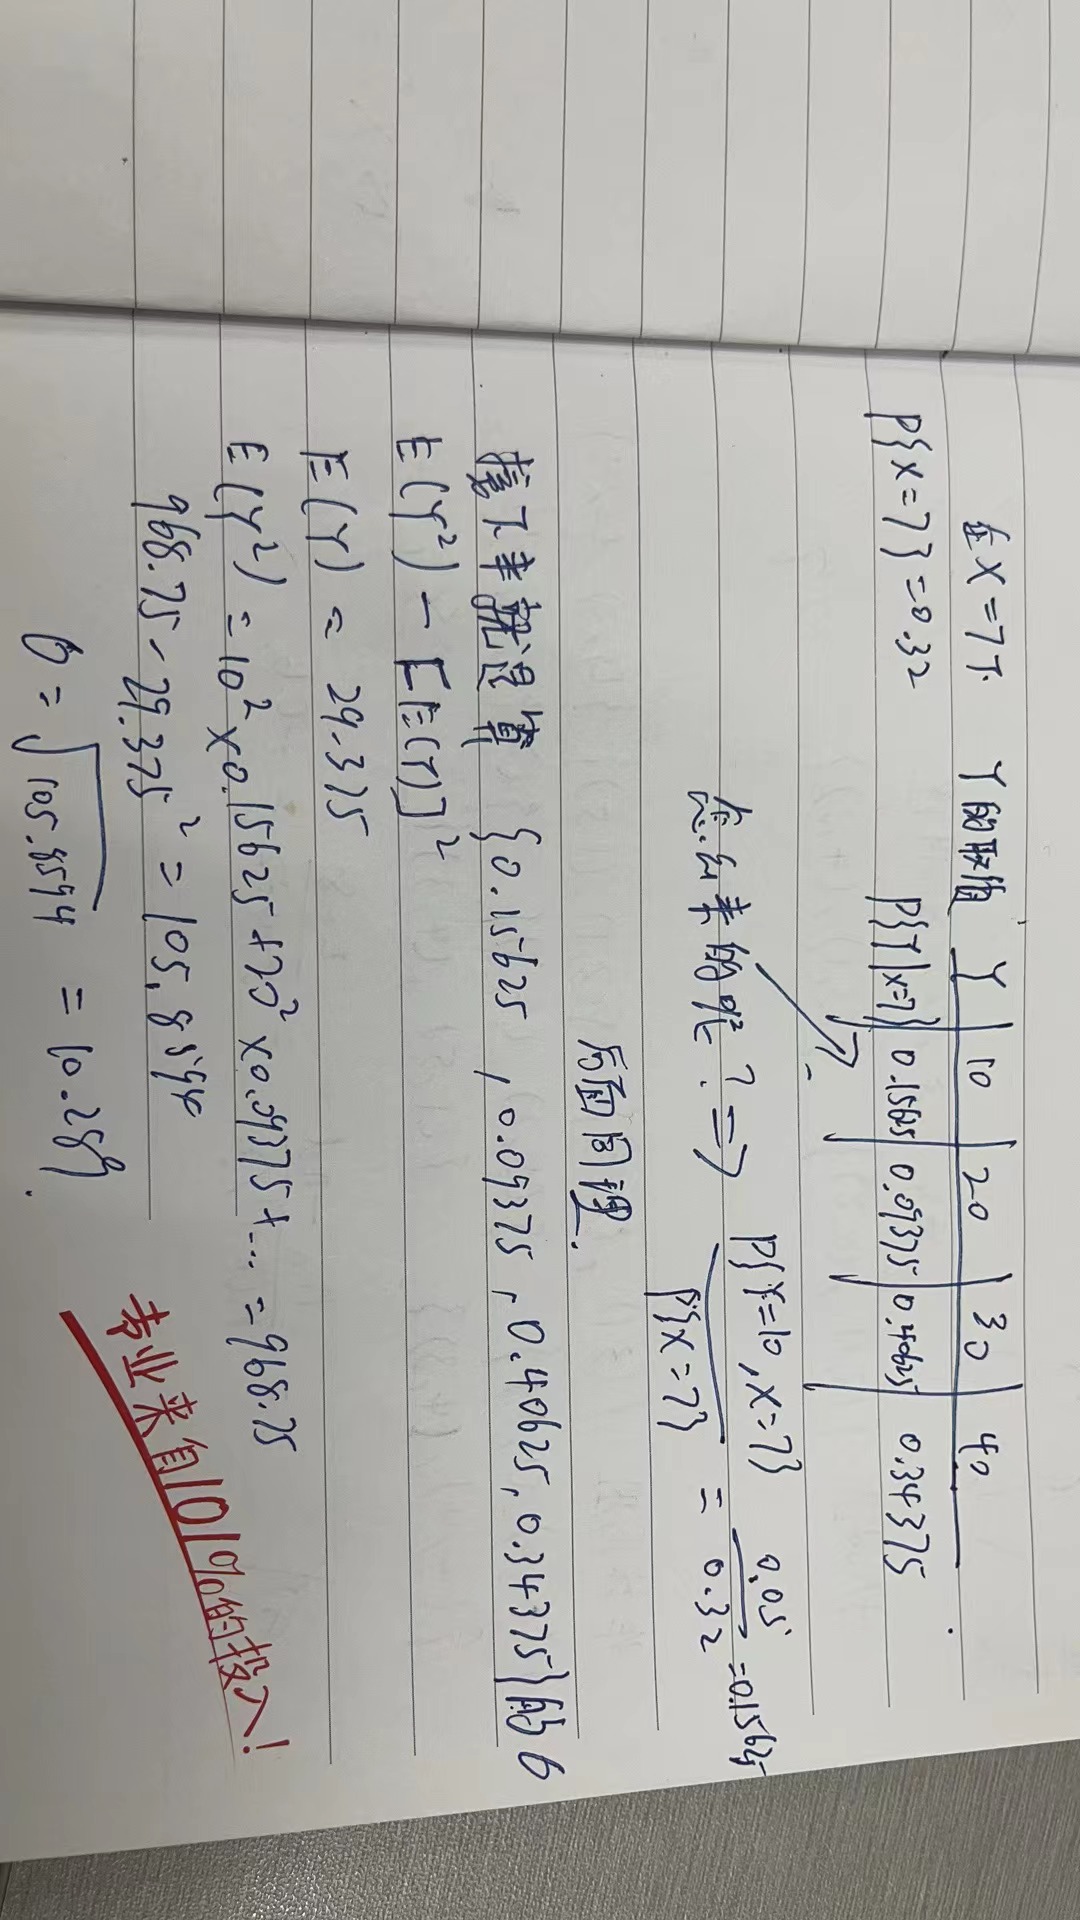 在X=7下 Y的取值 Y 10 20 30 40
P{X=7}=0.32 P{Y|X=7} 0.15625 0.09375 0.40625 0.34375
怎么来的呢?⇒ P{Y=10,X=7} / P{X=7} = 0.05 / 0.32 =0.15625
后面同理.
接下来就是算 {0.15625,0.09375,0.40625,0.34375}的σ
E(Y²)-[E(Y)]²
E(Y)=29.375
E(Y²)=10²×0.15625+20²×0.09375+...=968.75
968.75-29.375²=105.8594
σ=√105.8594=10.289.
专业来自101%的投入!